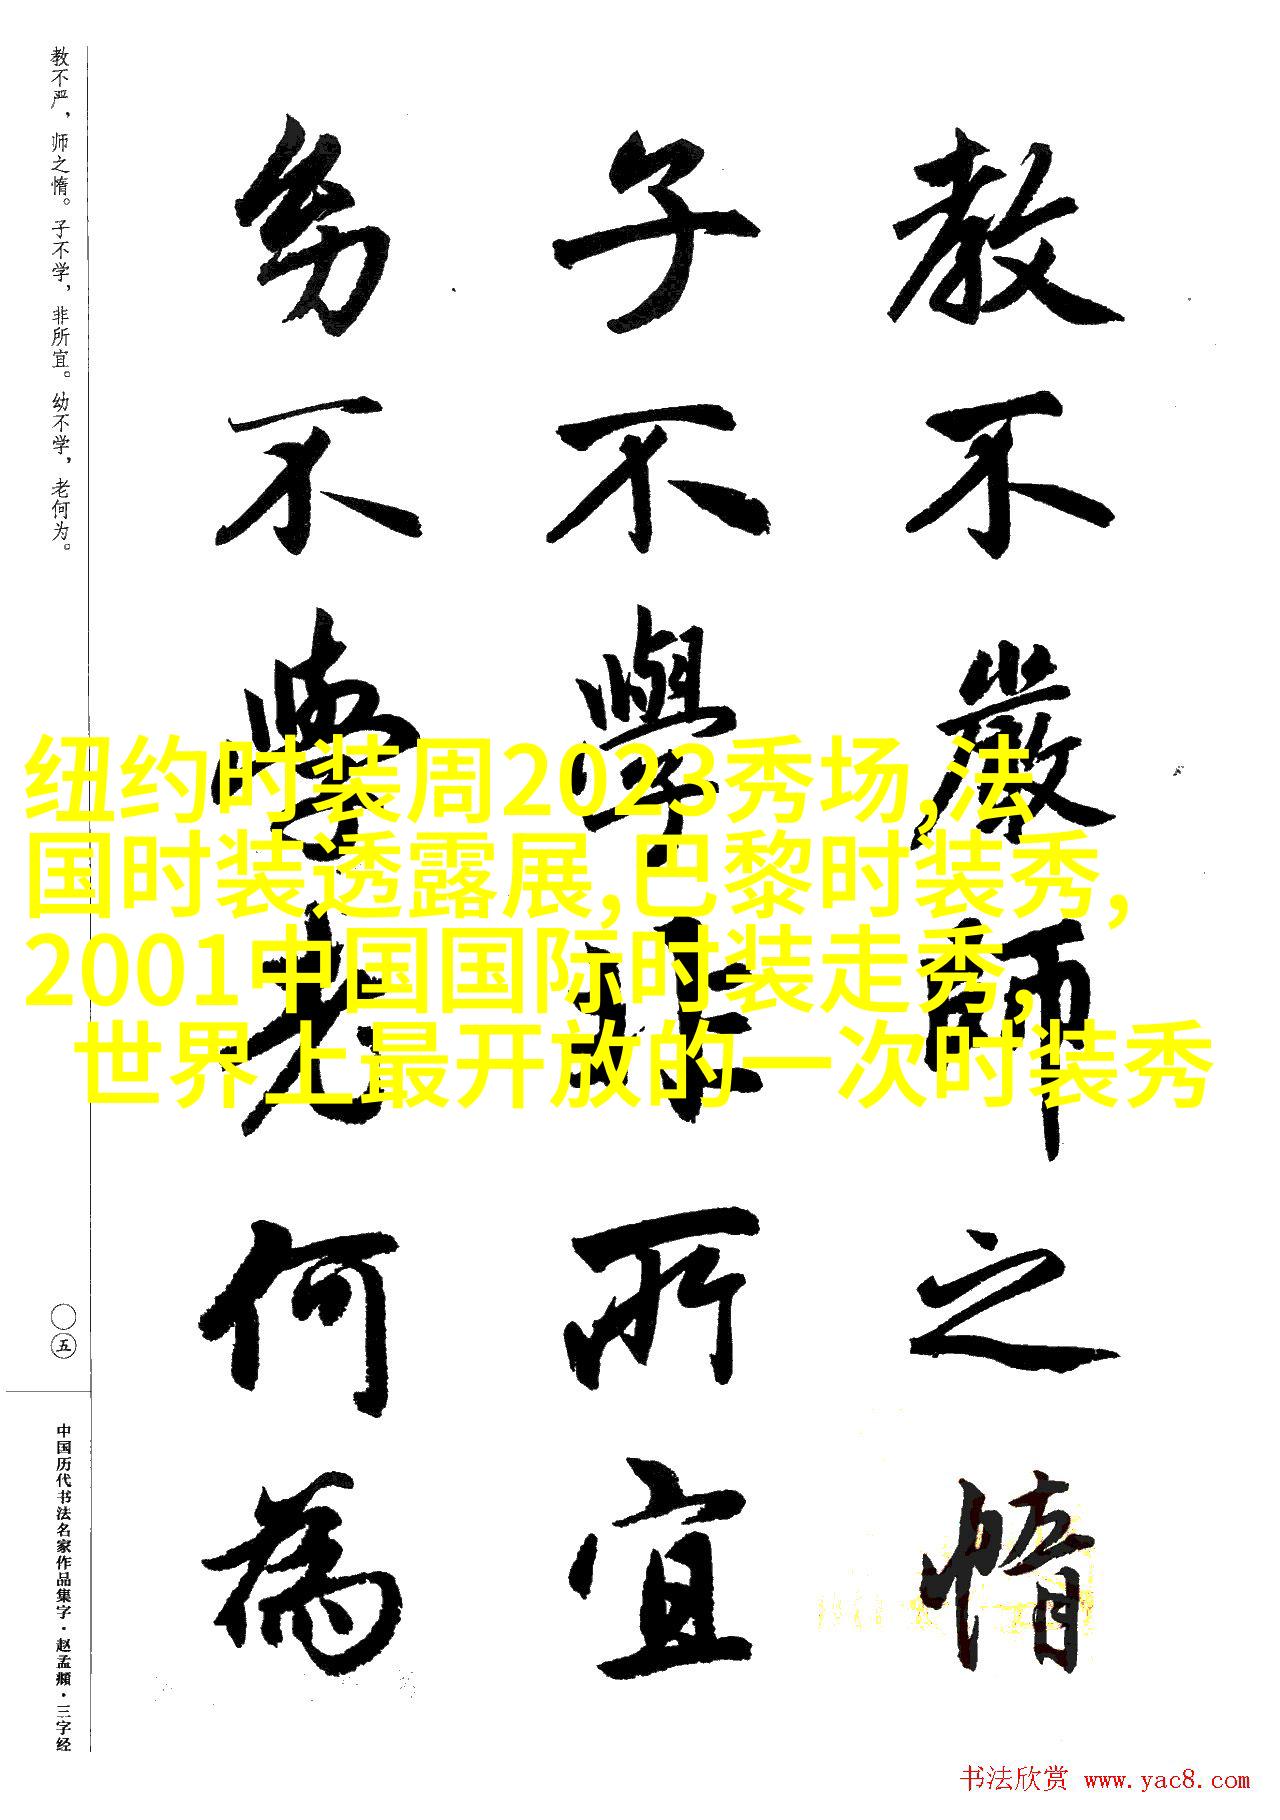 教不嚴師之惰
子不學非所宜
幼不學老何為
教不严，师之惰。子不学，非所宜。幼不学，老何为。
〇五
中国历代书法名家作品集字·赵孟頫·三字经
纽约时装周2023秀场,法
国时装透露展,巴黎时装秀,
2001中国国际时装走秀,
世界上最开放的一次时装秀
书法欣赏 www.yac8.com